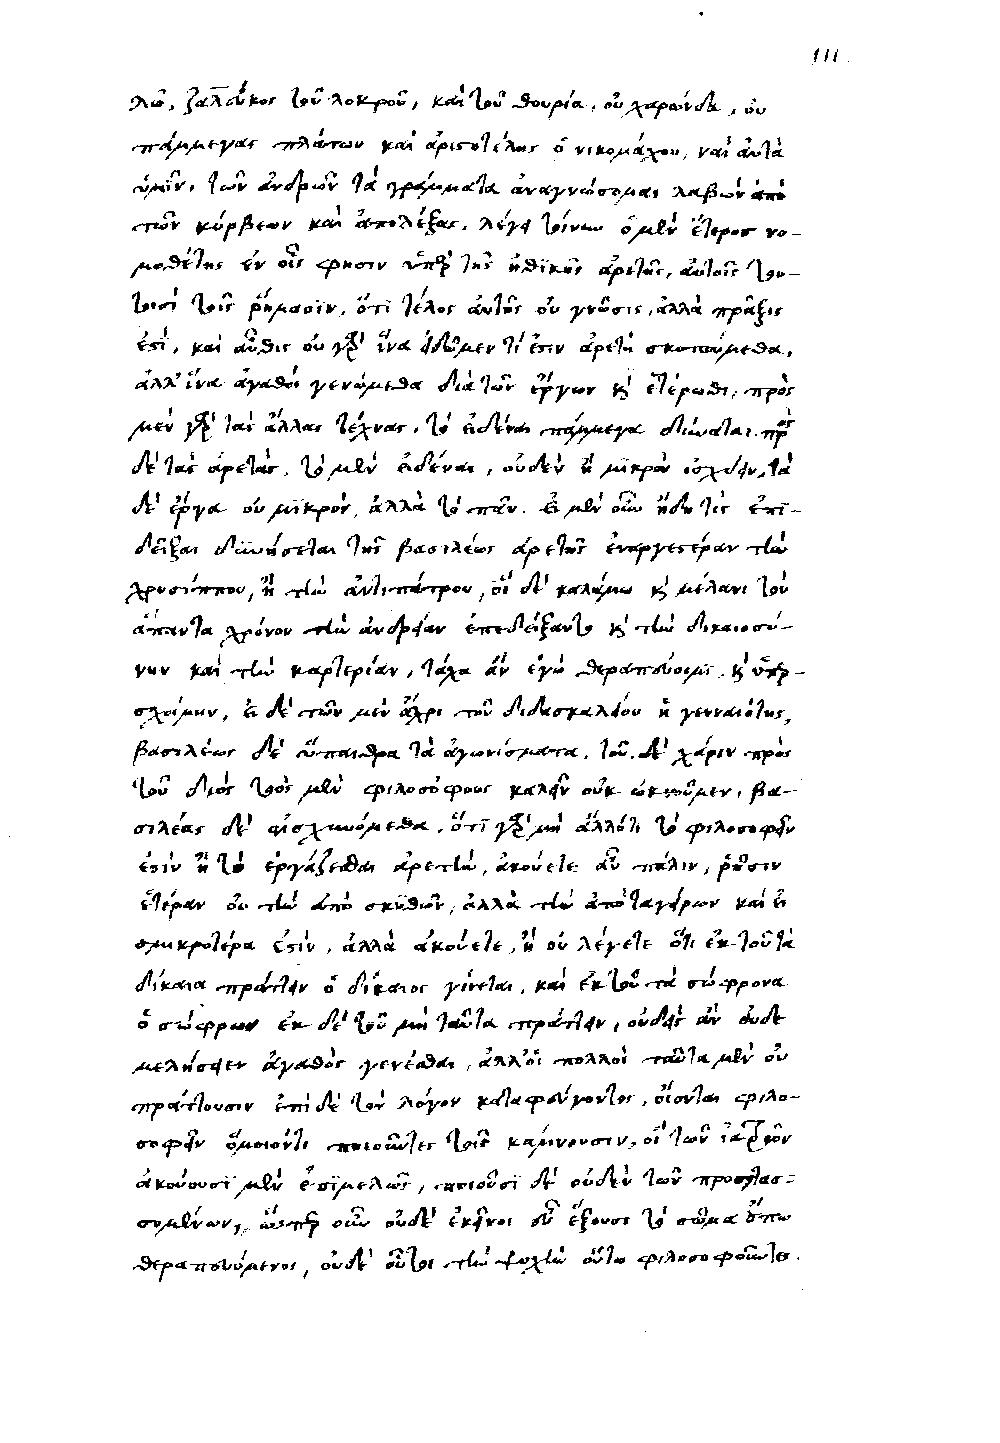 111
λῶ, ζάλευκος τοῦ λοκροῦ, καὶ τοῦ θουρία, οὐ χαρώνδα, ὁ
πάμμεγας πλάτων καὶ ἀριστοτέλης ὁ νικομάχου, καὶ αὐτὰ
ὑμῖν, τῶν ἀνδρῶν τὰ γράμματα ἀναγνώσομαι λαβὼν ἀπὸ
τῶν κύρβεων καὶ ἀπολέξας. λέγει τοίνυν ὁ μὲν ἕτερος νο-
μοθέτης ἐν οἷς φησιν ὑπὲρ τῆς ἠθϊκῆς ἀρετῆς, αὐτοῖς του-
τοισὶ τοῖς ῥήμασϊν, ὅτϊ τέλος αὐτῆς οὐ γνῶσις, ἀλλὰ πρᾶξις
ἐστὶ, καὶ αὖθις οὐ γὰρ ἵνα εἰδῶμεν τί ἐστιν ἀρετὴ σκοπούμεθα,
ἀλλ' ἵνα ἀγαθοὶ γενώμεθα διὰ τῶν ἔργων καὶ ἑτέρωθι, πρὸς
μὲν γὰρ τὰς ἄλλας τέχνας, τὸ εἰδέναι πάμμεγα δύναται. πρὸς
δὲ τὰς ἀρετὰς, τὸ μὲν εἰδέναι, οὐδὲν ἢ μϊκρὸν ἰσχύειν, τὰ
δὲ ἔργα οὐ μϊκρὸν, ἀλλὰ τὸ πᾶν. εἰ μὲν οὖν ἤδη τὶς ἐπϊ-
δεῖξαι δυνήσεται τῆς βασιλέως ἀρετῆς ἐναργεστέραν τὴν
χρυσίππου, ἢ τὴν ἀντιπάτρου, οἳ δὲ καλάμω καὶ μέλανι τὸν
ἅπαντα χρόνον τὴν ἀνδρείαν ἐπεδείξαντο καὶ τὴν δικαιοσύ-
νην καὶ τὴν καρτερίαν, τάχα ἂν ἐγὼ θεραπεύοιμϊ καὶ ὑπερ-
σχοίμην, εἰ δὲ τῶν μὲν ἄχρι τοῦ διδασκαλείου ἡ γενναιότης,
βασιλέως δὲ ὕπαιθρα τὰ ἀγωνίσματα, τοῦ δὲ χάριν πρὸς
τοῦ διὸς τοὺς μὲν φιλοσόφους καλεῖν οὐκ ὀκνοῦμεν, βα-
σιλέας δὲ αἰσχυνόμεθα, ὅτϊ γὰρ μὴ ἄλλό τι τὸ φιλοσοφεῖν
ἐστὶν ἢ τὸ ἐργάζεσθαι ἀρετὴν, ἀκούετε αὖ πάλιν, ῥῆσιν
ἑτέραν οὐ τὴν ἀπὸ σκυθῶν, ἀλλὰ τὴν ἀπὸ ταγείρων καὶ εἰ
σμικροτέρα ἐστὶν, ἀλλὰ ἀκούετε, ἢ οὐ λέγετε ὅτι ἐκ τοῦ τὰ
δίκαια πράττειν ὁ δίκαιος γίνεται, καὶ ἐκ τοῦ τὰ σώφρονα
ὁ σώφρων ἐκ δὲ τοῦ μὴ ταῦτα πράττειν, οὐδεὶς ἂν οὐδὲ
μελήσειεν ἀγαθὸς γενέσθαι, ἀλλ' οἱ πολλοὶ ταῦτα μὲν οὐ
πράττουσιν ἐπὶ δὲ τὸν λόγον καταφεύγοντες, οἴονται φιλο-
σοφεῖν ὅμοιόντι ποιοῦντες τοῖς κάμνουσιν, οἳ τῶν ἰατρῶν
ἀκούουσϊ μὲν ἐπιμελῶς, ποιοῦσϊ δὲ οὐδὲν τῶν προσταс-
σομένων, ὥσπερ οὖν οὐδὲ ἐκεῖνοι εὖ ἕξουσι τὸ σῶμα οὕτω
θεραπευόμενοι, οὐδὲ οὗτοι τὴν ψυχὴν οὕτω φιλοσοφοῦντες.